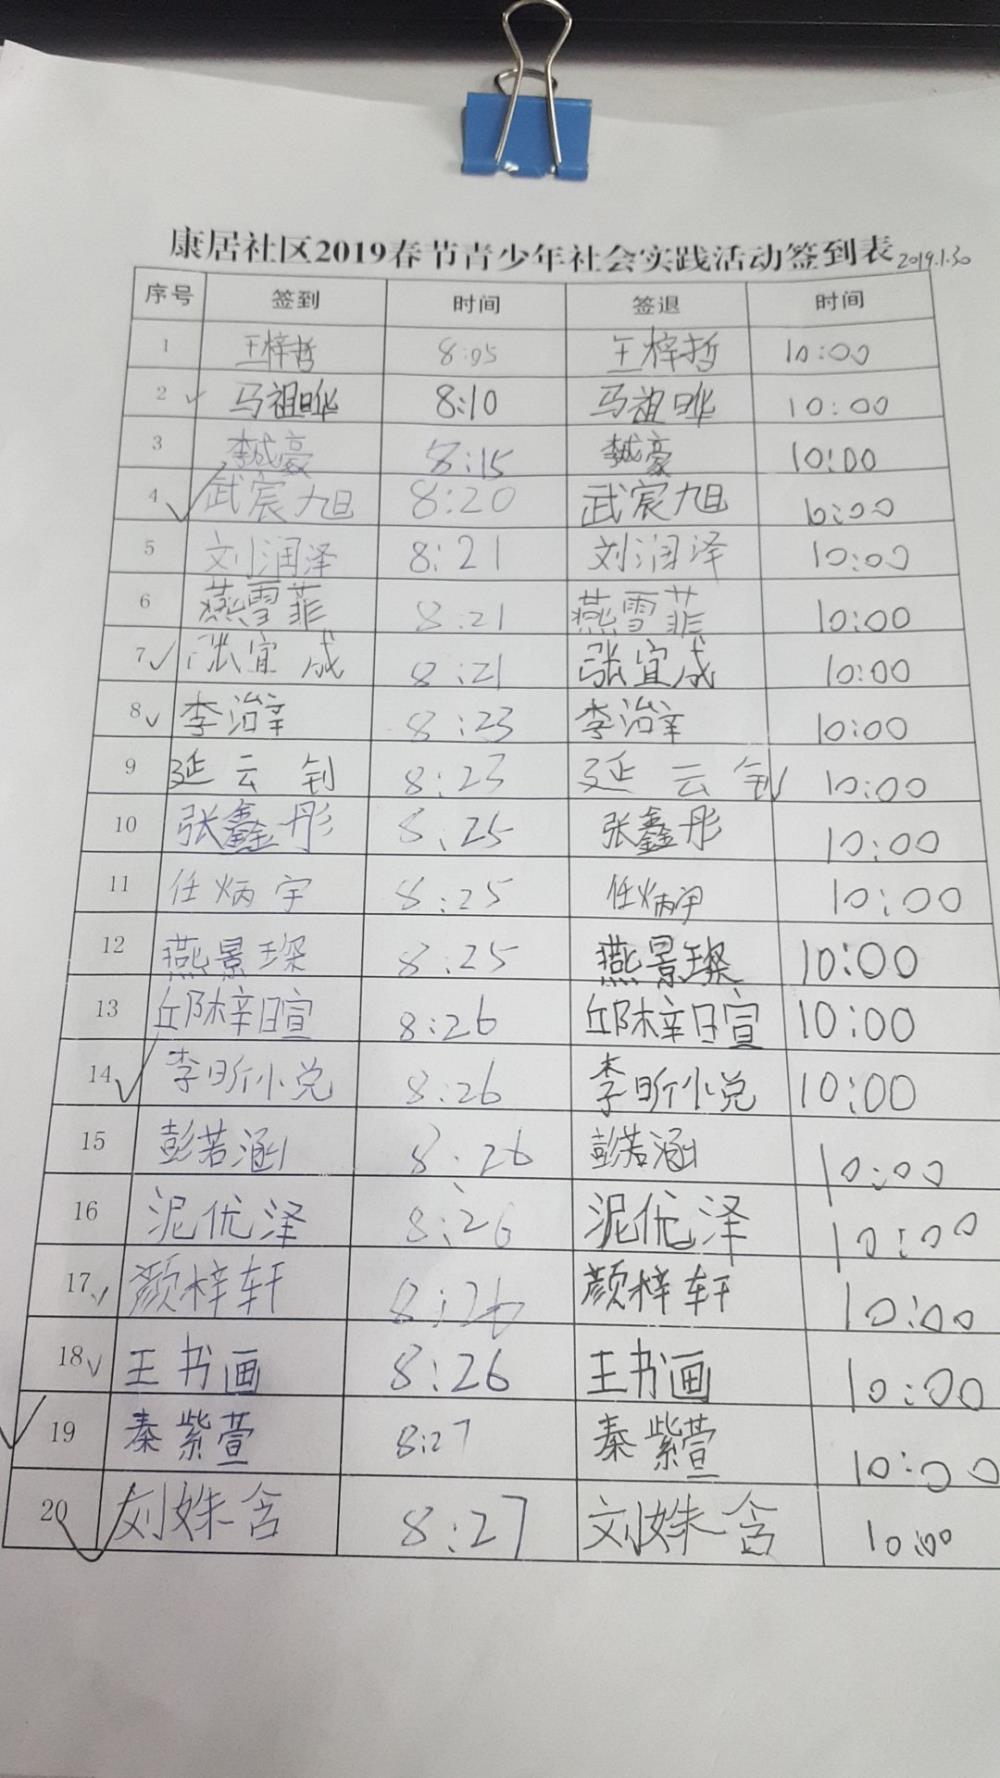 康居社区2019春节青少年社会实践活动签到表 2019.1.30
序号 签到 时间 签退 时间
1 王梓哲 8:05 王梓哲 10:00
2 马祖晔 8:10 马祖晔 10:00
3 李诚豪 8:15 李诚豪 10:00
4 武宸旭 8:20 武宸旭 10:00
5 刘润泽 8:21 刘润泽 10:00
6 燕雪菲 8:21 燕雪菲 10:00
7 张宜成 8:21 张宜成 10:00
8 李治辛 8:23 李治辛 10:00
9 延云钊 8:23 延云钊 10:00
10 张鑫彤 8:25 张鑫彤 10:00
11 任炳宇 8:25 任炳宇 10:00
12 燕景璨 8:25 燕景璨 10:00
13 邱梓暄 8:26 邱梓暄 10:00
14 李昕悦 8:26 李昕悦 10:00
15 彭若涵 8:26 彭若涵 10:00
16 泥优泽 8:26 泥优泽 10:00
17 颜梓轩 8:26 颜梓轩 10:00
18 王书画 8:26 王书画 10:00
19 秦紫萱 8:27 秦紫萱 10:00
20 刘姝含 8:27 刘姝含 10:00